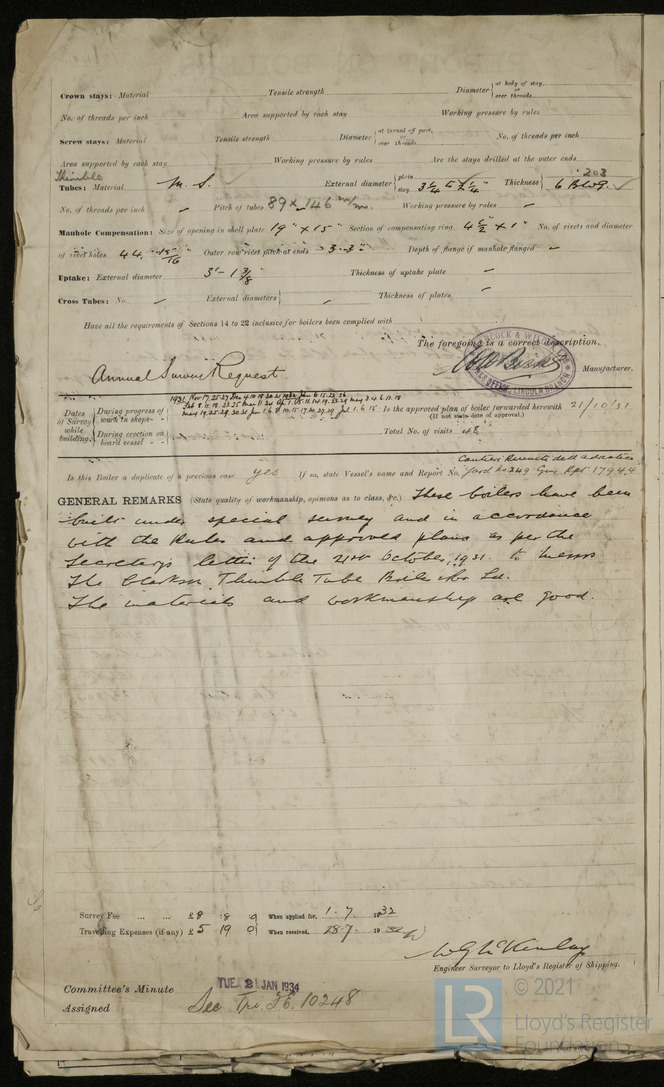 Crown stays: Material Tensile strength Diameter at body of stay, or over threads.
No. of threads per inch Area supported by each stay Working pressure by rules
Screw stays: Material Tensile strength Diameter at turned off part, or over threads. No. of threads per inch
Area supported by each stay Working pressure by rules Are the stays drilled at the outer ends
Thimble 203
Tubes: Material M.S. External diameter plain stay 3 1/4" Thickness 6 B.W.G.
No. of threads per inch Pitch of tubes 89 x 146 m/m. Working pressure by rules
Manhole Compensation: Size of opening in shell plate 19" x 15" Section of compensating ring 4 1/2" x 1" No. of rivets and diameter
of rivet holes 44, 15/16" Outer row rivet pitch at ends 3.3" Depth of flange if manhole flanged
Uptake: External diameter 3'-1 3/8" Thickness of uptake plate
Cross Tubes: No. External diameters Thickness of plates
Have all the requirements of Sections 14 to 22 inclusive for boilers been complied with
The foregoing is a correct description,
Manufacturer.
Annual Survey Request
Dates of Survey while building During progress of work in shops - - 1931 Nov 17. 25. 27 Dec
Is the approved plan of boiler forwarded herewith 21/10/31
(If not state date of approval.)
During erection on board vessel - - - Total No. of visits 45
Cantieri Riuniti dell Adriatico
Is this Boiler a duplicate of a previous case yes If so, state Vessel's name and Report No. Yard No 249 Rpt. 17944
GENERAL REMARKS (State quality of workmanship, opinions as to class, &c.) These boilers have been
built under special survey and in accordance
with the Rules and approved plans as per the
Secretary's letter of the 21st October, 1931. to Messrs
The Clarkson Thimble Tube Boiler Co Ld.
The materials and workmanship are good.
Survey Fee ... ... £ 8 : 8 : 0 When applied for, 1.7. 1932
Travelling Expenses (if any) £ 5 19 0 When received, 28.7. 19 32
W G McKinlay
Engineer Surveyor to Lloyd's Register of Shipping.
Committee's Minute TUE. 2 JAN 1934
Assigned See Tri. J.E. 10248
© 2021
Lloyd's Register
Foundation